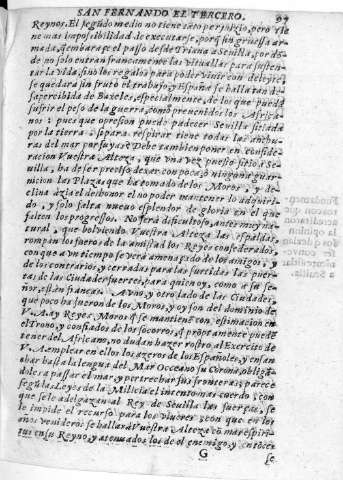 SAN FERNANDO EL TERCERO. 97
Reynos. El segũdo medio no tiene tãto perjuyzio, pero tie
ne mas impossibilidad de executarse, porq̃ sin gruessa ar
mada, q̃ embarase el passo desde Triana a Seuilla, por dõ
de no solo entran francamente las vituallas para susten
tar la vida, sino los regalos para poder viuir con deleyte,
se quedarà sin fruto el trabajo, y España se halla tan de
sapercibida de Baxeles, especialmente, de los que puedã
sufrir el peso de la guerra, como preuenidos los Africa
nos: pues que opresion puede padecer Seuilla sitiada
por la tierra, si para respirar tiene todas las anchu-
ras del mar por suyas? Debe tambien poner en conside
racion Vuestra Alteza, que vna vez puesto sitio a Se
uilla, ha de ser preciso dexar con poca, ò ninguna guar
nicion las Plazas que ha tomado de los Moros, y de-
clina àzia el desbonor el no poder mantener lo adquiri
do, y solo falta nueuo esplendor de gloria en el que
falten los progressos. No serà dificultoso, antes muy na
tural, que bolviendo Vuestra Alteza las espaldas,
rompan los fueros de la amistad los Reyes confederados,
con que a vn tiempo se verà amenazado de los amigos, y
de los contrarios, y cerradas para las surtidas las puer-
tas de las Ciudades fuertes, para quien oy, como a su se-
ñor, estèn francas. A vno, y otro lado de las Ciudades,
que poco ha fueron de los Moros, y oy son del dominio de
V. A. ay Reyes Moros, q̃ se mantienẽ con estimacion en
el Trono, y confiados de los socorros, q̃ prõptamente puedẽ
tener del Africano, no dudan hazer rostro al Exercito de
V. A. emplear en ellos los azeros de los Españoles, y ensan
char hasta la lengua del Mar Occeano su Corona, obligãdo-
les a passar el mar, y pertrechar sus fronteras, parece
segũ las Leyes de la Milicia el intento mas cuerdo, con
que se le adelgazan al Rey de Seuilla las fuerças, se
le impide el recurso para los viueres, y con que en los
años venideros se hallarà Vuestra Alteza cõ mas espiri-
tu en su Reyno, y atenuados los de el enemigo, y entõces
G se